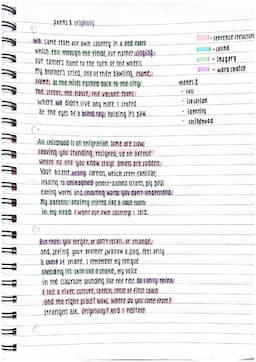 poems : originally
We came from our own country in a red room
which fell through the fields, our mother singing
our father's name to the turn of the wheels.
My brothers cried, one of them bawling, Home,
Home, as the miles rushed back to the city,
the street, the house, the vacant rooms
where we didn't live any more. I stared
at the eyes of a blind toy, holding its paw.
All childhood is an emigration. Some are slow,
leaving you standing, resigned, up an avenue
where no one you know stays. Others are sudden.
Your accent wrong. Corners, which seem familiar,
leading to unimagined pebble-dashed estates, big boys
eating worms and shouting words you don't understand.
My parents' anxiety stirred like a loose tooth
in my head. I want our own country, I said.
But then you forget, or don't recall, or change,
and, seeing your brother swallow a slug, feel only
a skelf of shame. I remember my tongue
shedding its skin like a snake, my voice
in the classroom sounding like the rest. Do I only think
I lost a river, culture, speech, sense of first space
and the right place? Now, Where do you come from?
strangers ask. Originally? And I hesitate.
- sentence structure
- sound
- imagery
- word choice
themes :
- loss
- isolation
- identity
- childhood